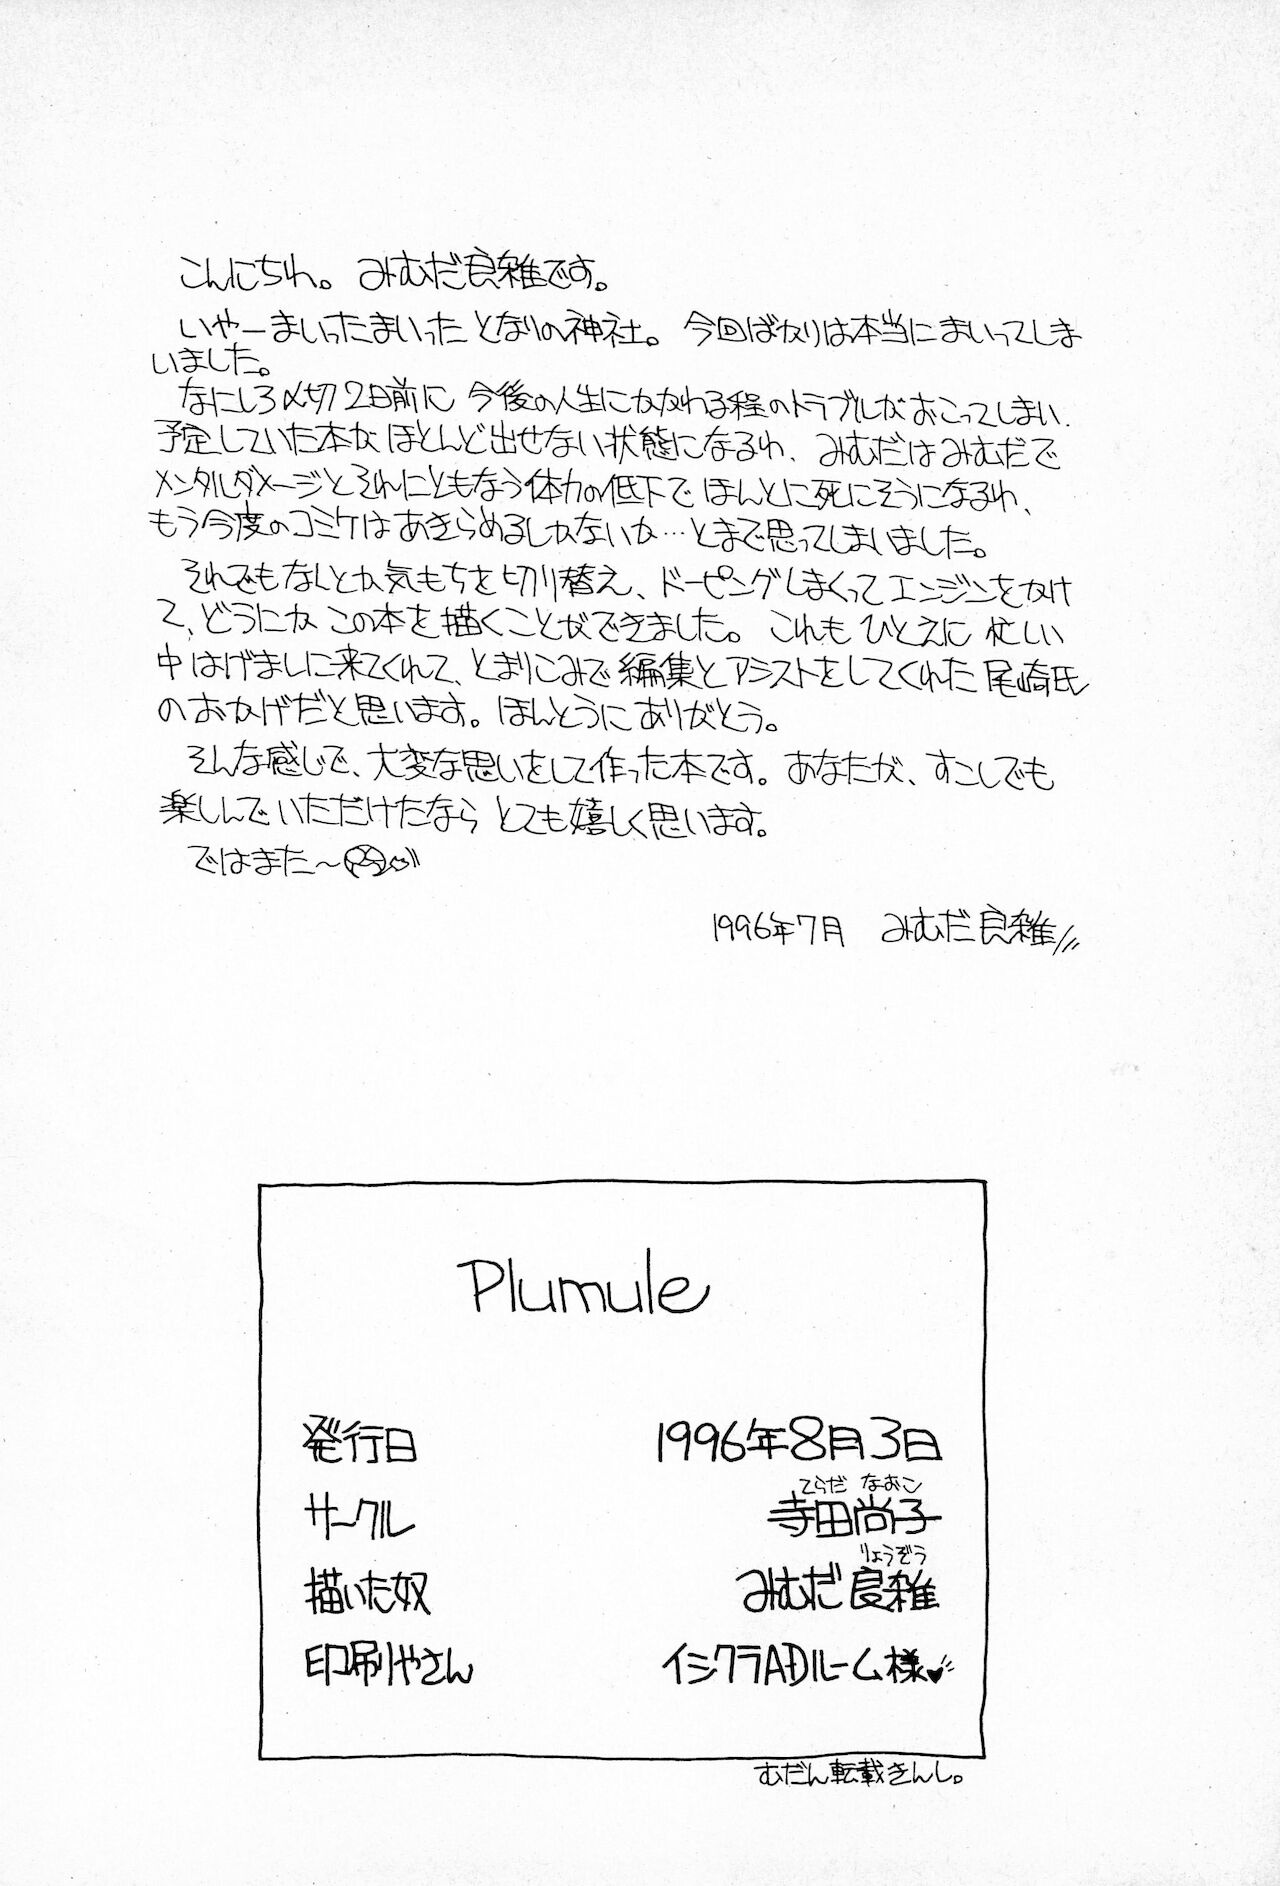 こんにちわ。 みむだ良雑です。
いやーまいったまいったとなりの神社。 今回ばかりは本当にまいってしま
いました。
なにしろ〆切2日前に 今後の人生にかかわる程のトラブルがおこってしまい、
予定していた本が ほとんど出せない状態になるわ、 みむだはみむだで
メンタルダメージとそれにともなう体力の低下で ほんとに死にそうになるわ、
もう今度のコミケはあきらめるしかないか…とまで思ってしまいました。
それでもなんとか気もちを切り替え、ドーピングしまくってエンジンをかけ
て、どうにか この本を描くことができました。 これも ひとえに 忙しい
中はげましに来てくれて、とまりこみで編集とアシストをしてくれた尾崎氏
のおかげだと思います。ほんとうにありがとう。
そんな感じで、大変な思いをして作った本です。あなたが、すこしでも
楽しんでいただけたなら とても嬉しく思います。
ではまた〜
1996年7月 みむだ良雑
Plumule
発行日 1996年8月3日
てらだ なおこ
サークル 寺田尚子
りょうぞう
描いた奴 みむだ良雑
印刷やさん イシクラADルーム様♥
むだん転載きんし。